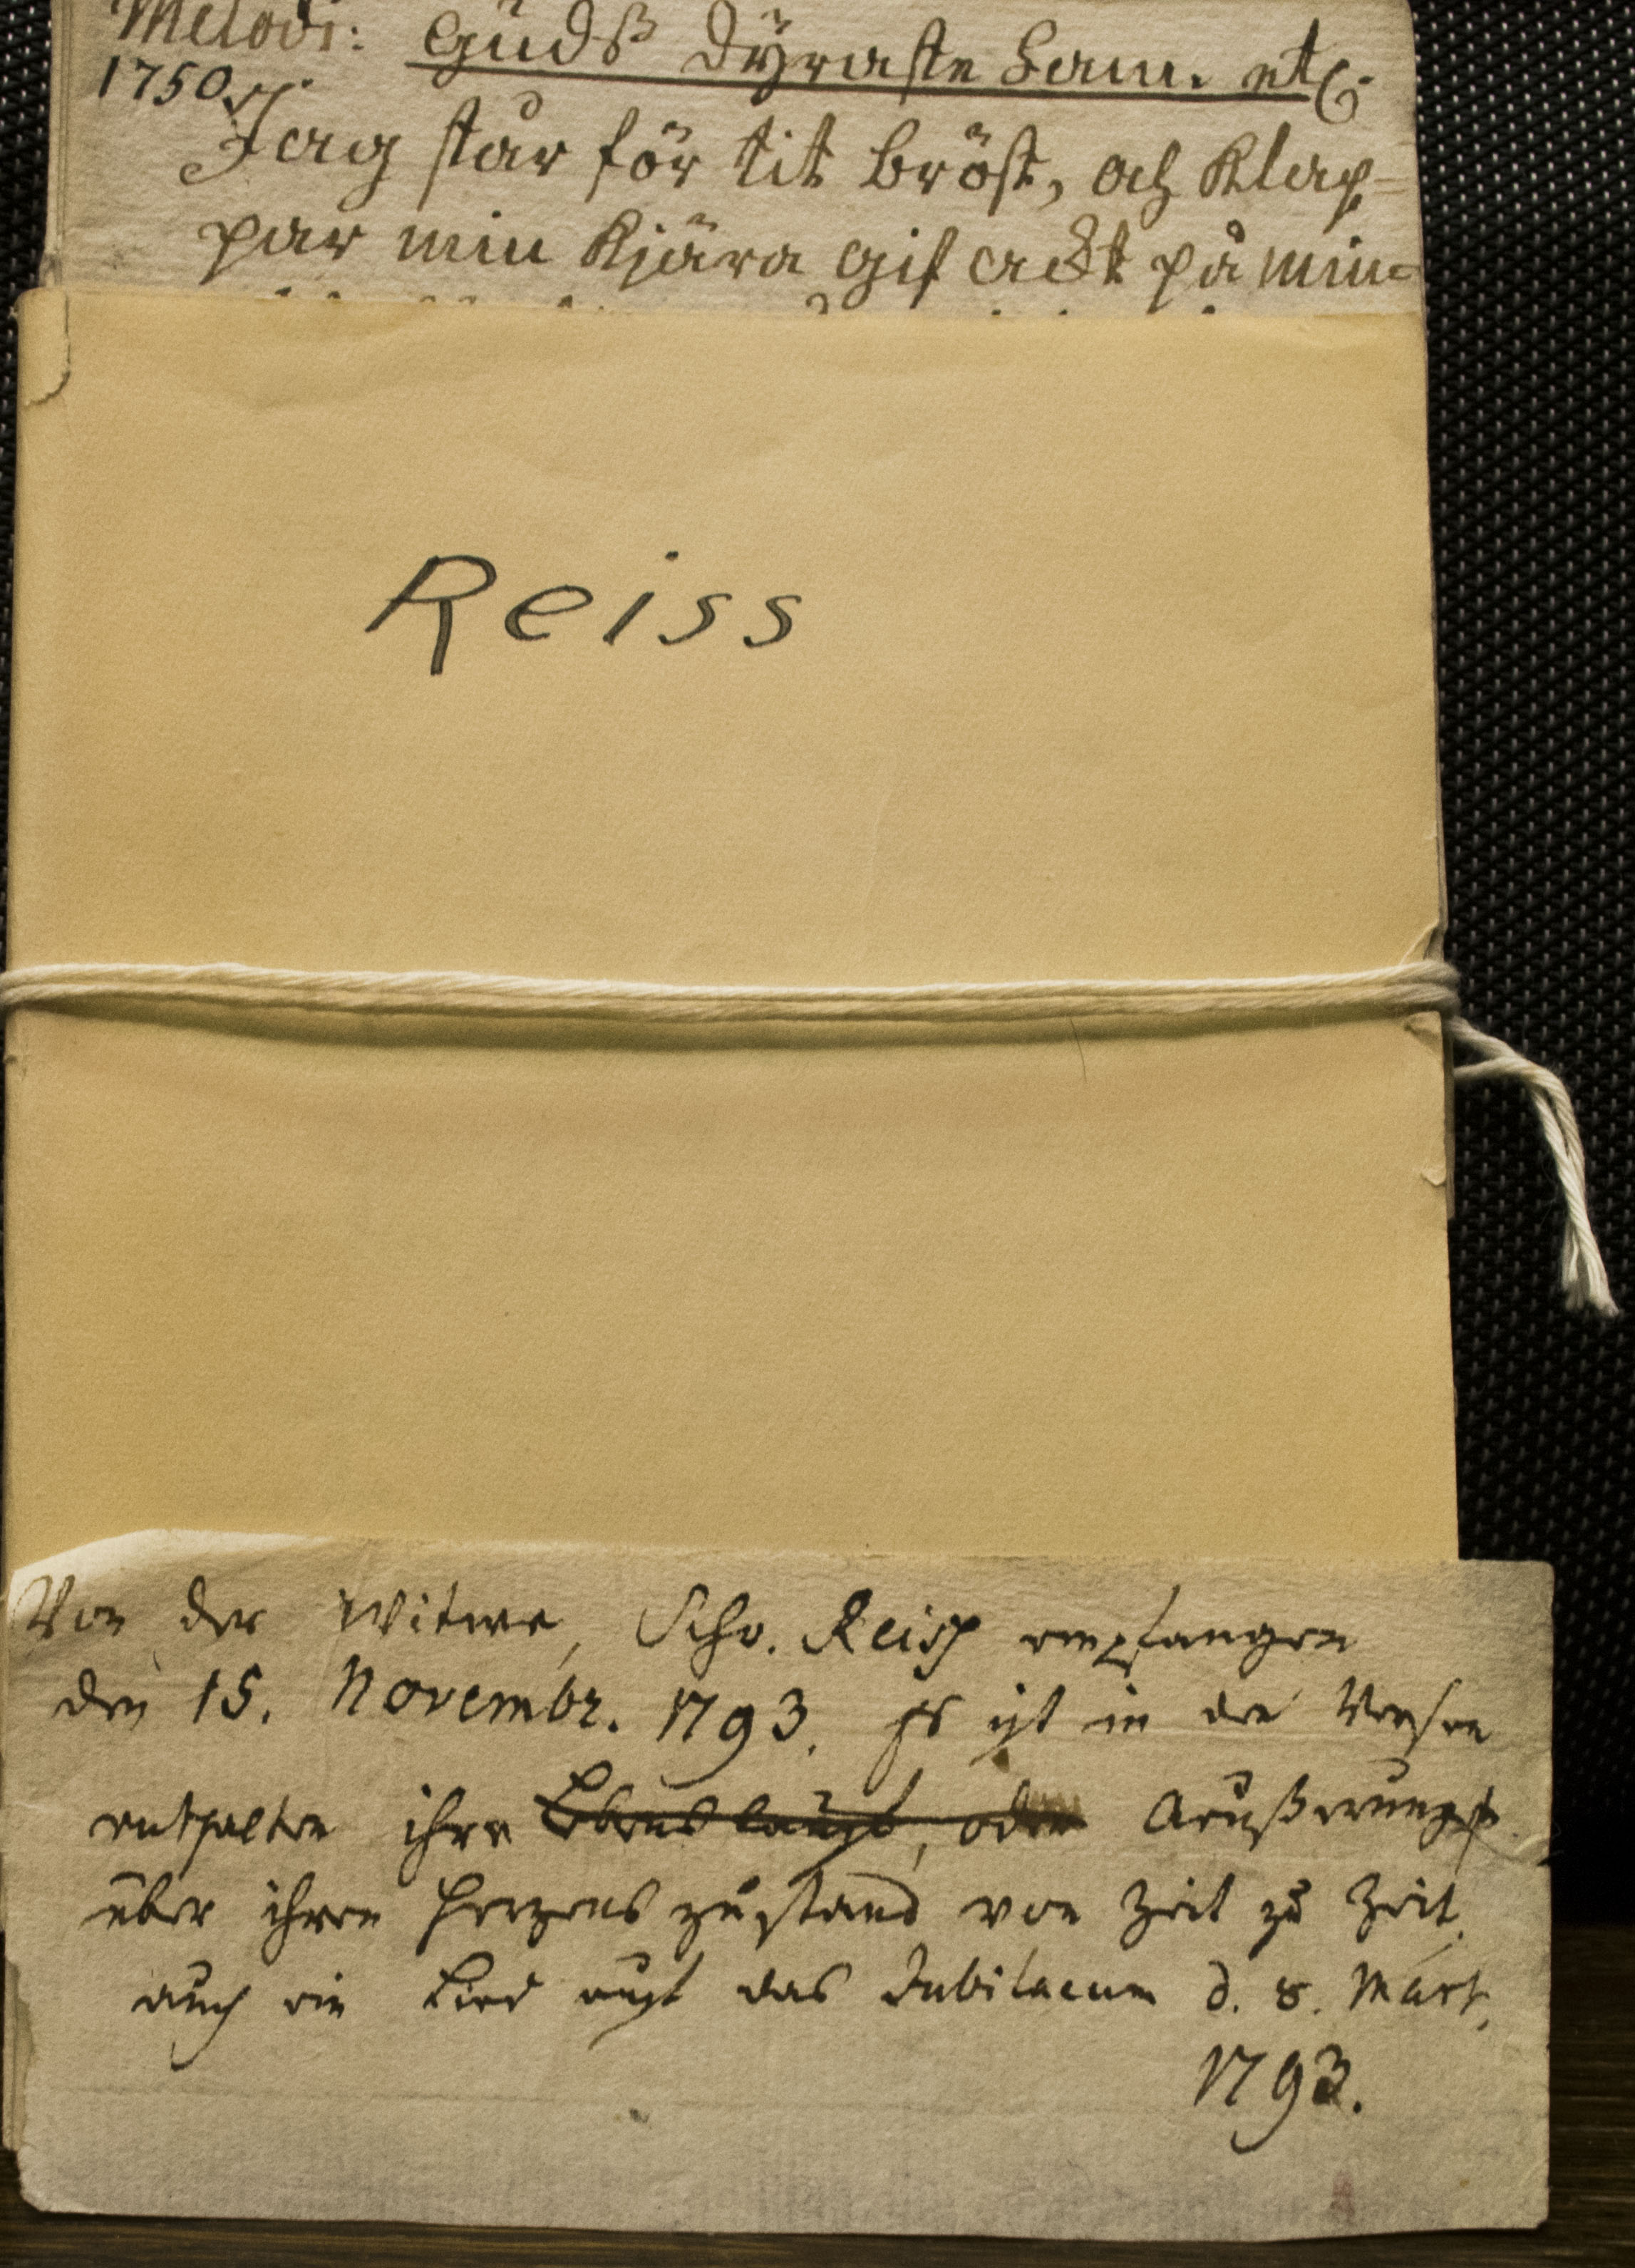 Melodi: Gudß Dÿraste Lam. etc:
1750.
Jag står för tit bröst, och klap=
par min kjära gif ackt på min=
Reiss
Von der Witwe, Schw. Reiss empfangen
den 15. Novembr. 1793. Es ist in den Versen
enthalten ihre Lebenslauf, oder Aeußerungen
über ihren Herzenszustand von Zeit zu Zeit,
auch ein Lied aufs das Jubilaeum d. 8. Mart.
1793.